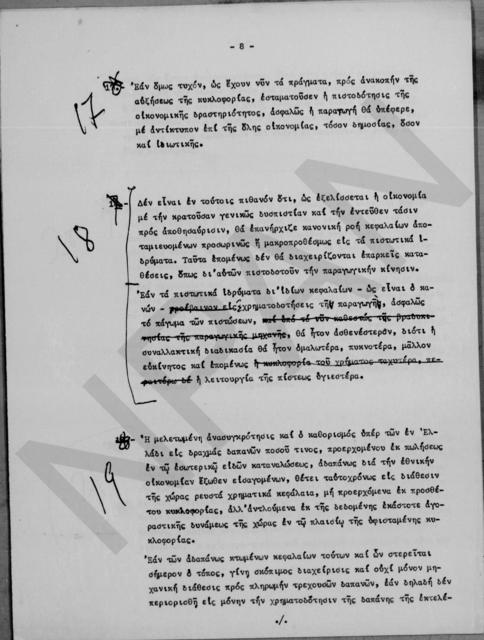 - 8 -
17 Ἐάν ὅμως τυχόν, ὡς ἔχουν νῦν τά πράγματα, πρός ἀνακοπήν τῆς
αὐξήσεως τῆς κυκλοφορίας, ἐσταματοῦσεν ἡ πιστοδότησις τῆς
οἰκονομικῆς δραστηριότητος, ἀσφαλῶς ἡ παραγωγή θά ὑπέφερε,
μέ ἀντίκτυπον ἐπί τῆς ὅλης οἰκονομίας, τόσον δημοσίας, ὅσον
καί ἰδιωτικῆς.
18 Δέν εἶναι ἐν τούτοις πιθανόν ὅτι, ὡς ἐξελίσσεται ἡ οἰκονομία
μέ τήν κρατοῦσαν γενικῶς δυσπιστίαν καί τήν ἐντεῦθεν τάσιν
πρός ἀποθησαύρισιν, θά ἐπανήρχιζε κανονική ροή κεφαλαίων ἀπο-
ταμιευομένων προσωρινῶς ἤ μακροπροθέσμως είς τά πιστωτικά ἱ-
δρύματα. Ταῦτα ἑπομένως δέν θά διαχειρίζονται ἐπαρκεῖς κατα-
θέσεις, ὅπως δι'αὐτῶν πιστοδοτοῦν τήν παραγωγικήν κίνησιν.
Ἐάν τά πιστωτικά ἱδρύματα δι'ἰδίων κεφαλαίων - ὡς εἶναι ὁ κα-
νών - προέβαινον εἰς χρηματοδοτήσεις τῆς παραγωγῆς, ἀσφαλῶς
τό πάγωμα τῶν πιστώσεων, καί ὑπό τό νῦν καθεστώς τῆς βραδυκι-
νησίας τῆς παραγωγικῆς μηχανῆς, θά ἦτον ἀσθενέστερόν, διότι ἡ
συναλλακτική διαδικασία θά ἦτον ὁμαλωτέρα, πυκνοτέρα, μᾶλλον
εὐκίνητος καί ἑπομένως ἡ κυκλοφορία τοῦ χρήματος ταχυτέρα, πε-
ραιτέρω δέ ἡ λειτουργία τῆς πίστεως ὑγιεστέρα.
19 Ἡ μελετωμένη ἀνασυγκρότησις καί ὁ καθορισμός ὑπέρ τῶν ἐν Ἑλ-
λάδι εἰς δραχμάς δαπανῶν ποσοῦ τινος, προερχομένου ἐκ πωλήσεως
ἐν τῷ ἐσωτερικῷ εἰδῶν καταναλώσεως, ἀδαπάνως διά τήν ἐθνικήν
οἰκονομίαν ἔξωθεν εἰσαγομένων, θέτει ταὐτοχρόνως εἰς διάθεσιν
τῆς χώρας ρευστά χρηματικά κεφάλαια, μή προερχόμενα ἐκ προσθέ-
του κυκλοφορίας, ἀλλ'ἀντλούμενα ἐκ τῆς δεδομένης ἑκάστοτε ἀγο-
ραστικῆς δυνάμεως τῆς χώρας ἐν τῷ πλαισίῳ τῆς ὑφισταμένης κυ-
κλοφορίας.
Ἐάν τῶν ἀδαπάνως κτωμένων κεφαλαίων τούτων καί ὧν στερεῖται
σήμερον ὁ τόπος, γίνη σκόπιμος διαχείρισις καί οὐχί μόνον μη-
χανική διάθεσις πρός πληρωμήν τρεχουσῶν δαπανῶν, ἐάν δηλαδή δέν
περιορισθῇ εἰς μόνην τήν χρηματοδότησιν τῆς δαπάνης τῆς ἐκτελέ-
./.